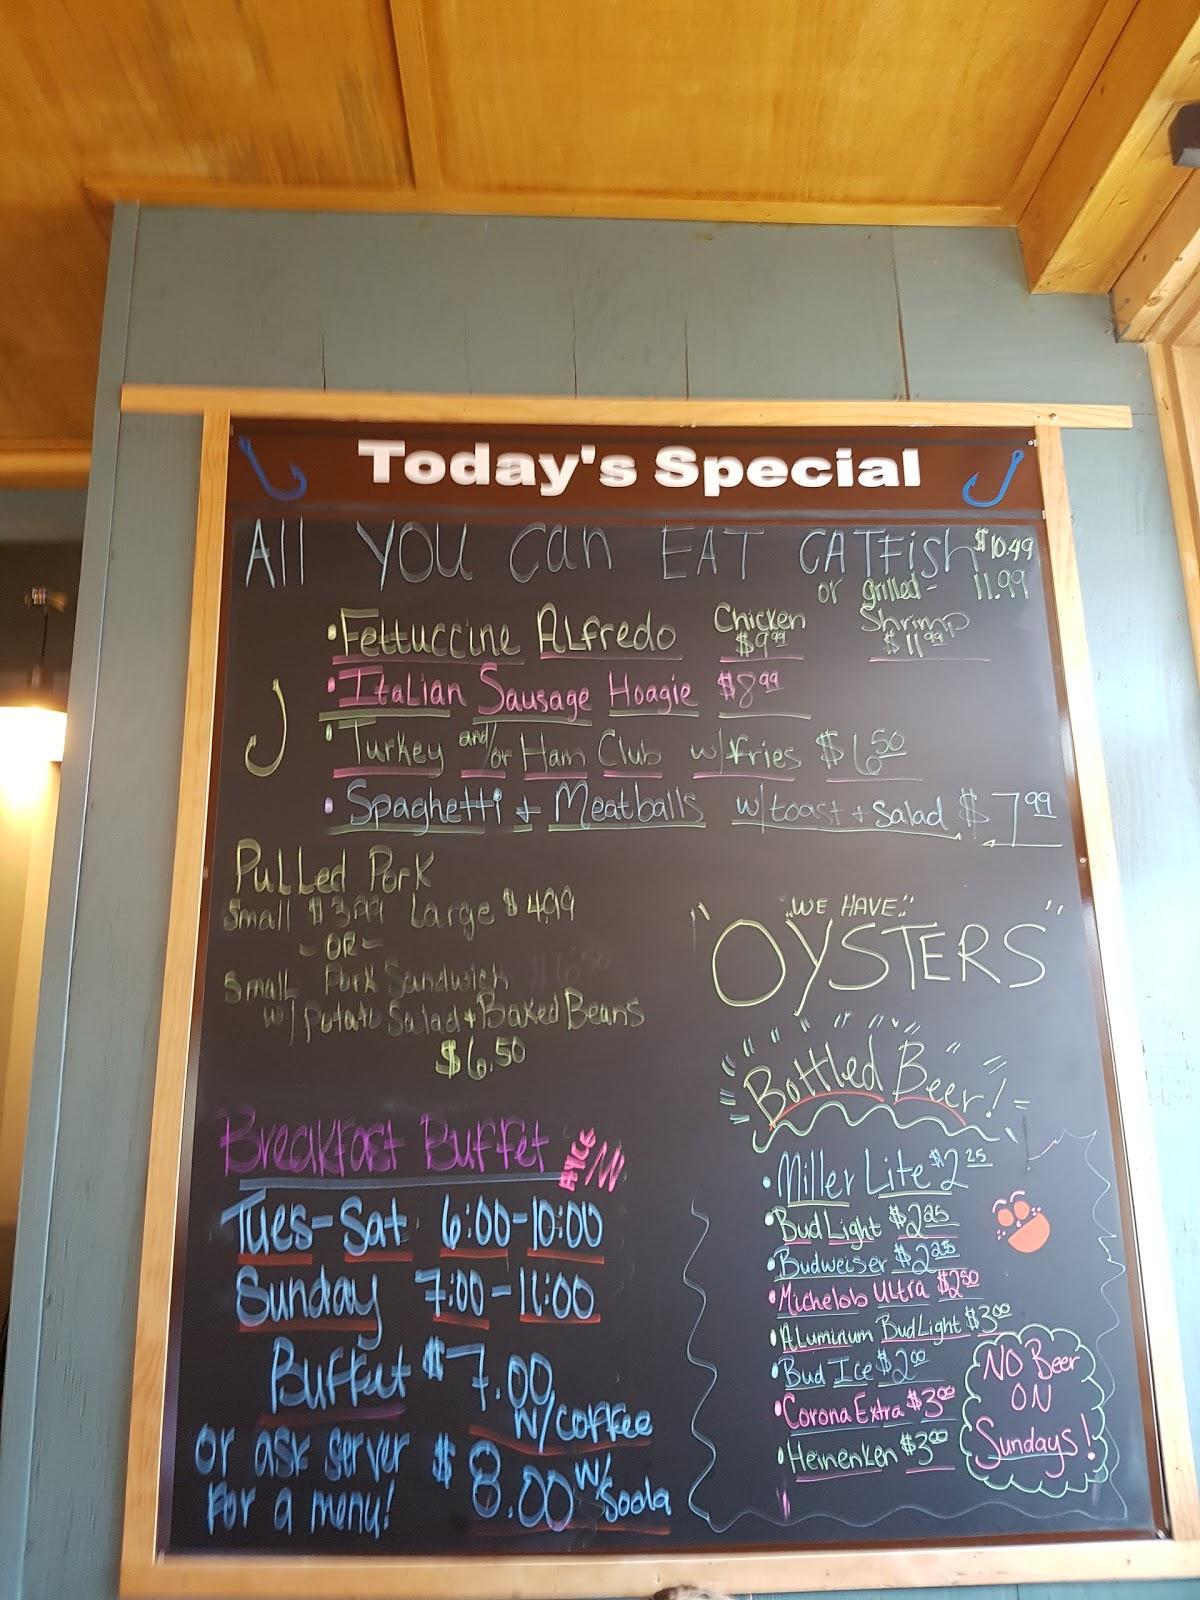 Today's Special
All YOU Can EAT CATFish $10.49
or grilled - 11.99
• Fettuccine ALfredo Chicken $9.99 Shrimp $11.99
• Italian Sausage Hoagie $8.99
• Turkey and/or Ham Club w/fries $6.50
• Spaghetti + Meatballs w/toast + Salad $7.99
PuLLed Pork
Small $3.99 Large $4.99
- OR -
Small Pork Sandwich
w/ Potato Salad + Baked Beans
$6.50
"WE HAVE"
"OYSTERS"
Bottled Beer!
• Miller Lite $2.25
• Bud Light $2.25
• Budweiser $2.25
• Michelob Ultra $2.50
• ALuminum BudLight $3.00
• Bud Ice $2.00
• Corona Extra $3.00
• Heinenken $3.00
NO Beer
ON
Sundays!
Breakfast Buffet AYCE
Tues-Sat 6:00-10:00
Sunday 7:00-11:00
Buffet $7.00
w/coffee
or ask server $8.00 w/ Soda
for a menu!